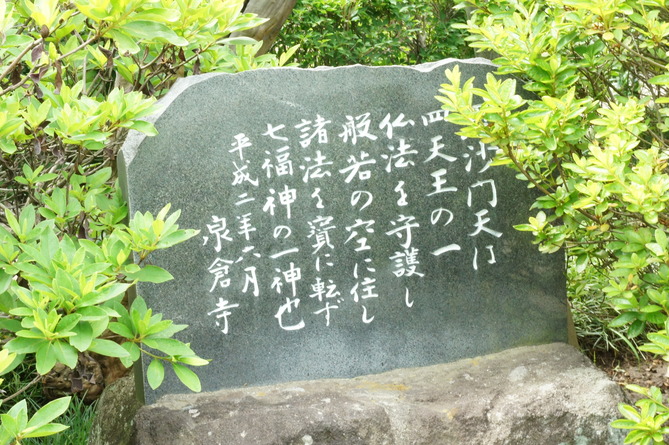 沙門天は
四天王の一
仏法を守護し
般若の空に住し
諸法を寳に転ず
七福神の一神也
平成二年六月
泉倉寺